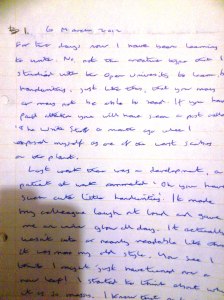 1. 6 March 2012
For ten days now I have been learning
to write. No not the creative type that I
studied with the Open University to learn but
handwriting, just like this, that you may
or may not be able to read. If you have
paid attention you will have seen a post called
The Write Stuff a month ago where I
exposed myself as one of the worst scribes
on the planet.
Last week there was a development, a
patient at work commented 'Oh you have
such cute little handwriting'. It made
my colleague laugh out loud and gave
me an inner glow all day. It actually
wasn't as nearly readable like this
it was more my old style. You see I
think I might just have turned over a
new leaf! I started to think about why
it is so messy. I know that